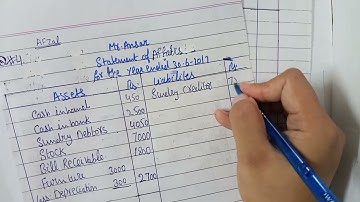 AFZAL
Q#4
Mr. Ansar
Statement of Affairs
for the year Ended 30-6-2017
Assets Rs Liabilites Rs
Cash in hand 450 Sundry Creditors
Cash in bank 2500
Sundry Debtors 4050
Stock 7000
Bill Receivable 1800
Furniture 3000
Less Depreciation 300 2700